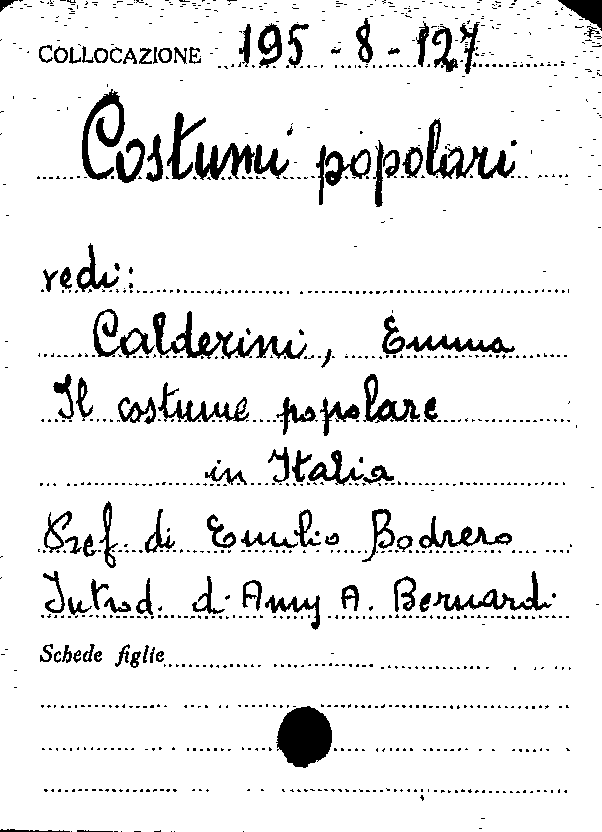 COLLOCAZIONE 195-8-127
Costumi popolari
vedi:
Calderini, Emma
Il costume popolare
in Italia
Pref. di Emilio Bodrero
Introd. di Amy A. Bernardi
Schede figlie